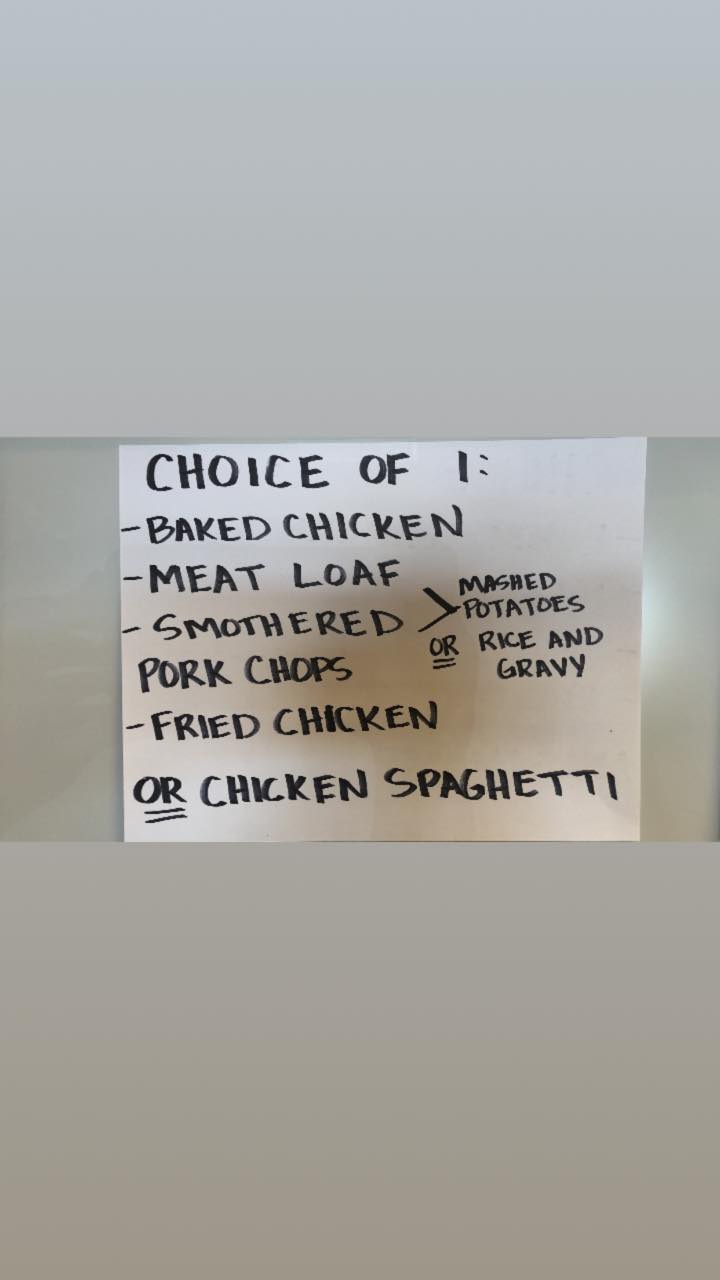 CHOICE OF 1:
- BAKED CHICKEN
- MEAT LOAF
- SMOTHERED
PORK CHOPS
> MASHED
POTATOES
OR RICE AND
GRAVY
- FRIED CHICKEN
OR CHICKEN SPAGHETTI